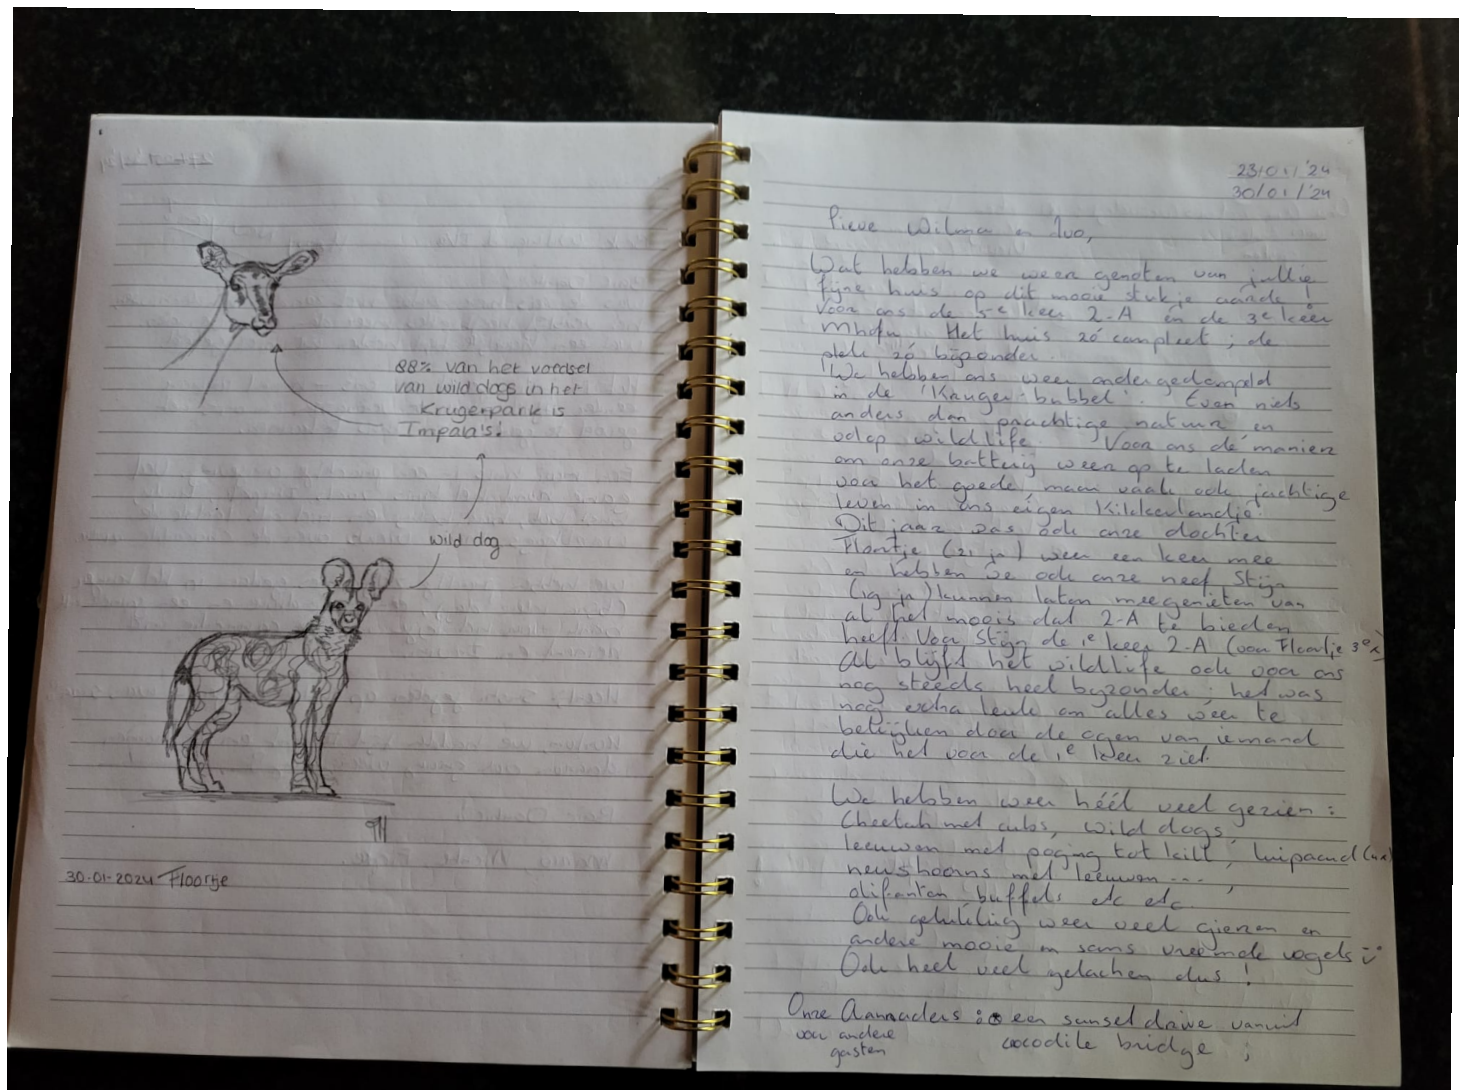 88% van het voedsel
van wild dogs in het
Krugerpark is
Impala's!
wild dog
30-01-2024 Floortje
23/01/'24
30/01/'24
Lieve Wilma en Ivo,
Wat hebben we weer genoten van jullie
fijne huis op dit mooie stukje aarde!
Voor ons de 5e keer 2-A en de 3e keer
Mhofu. Het huis zó compleet; de
plek zó bijzonder.
We hebben ons weer ondergedompeld
in de 'Kruger-bubbel'. Even niets
anders dan prachtige natuur en
volop wildlife. Voor ons dé manier
om onze batterij weer op te laden
voor het goede, maar vaak ook jachtige
leven in ons eigen Kikkerlandje.
Dit jaar was ook onze dochter
Floortje (21 jr) weer een keer mee
en hebben we ook onze neef Stijn
(19 jr) kunnen laten meegenieten van
al het moois dat 2-A te bieden
heeft. Voor Stijn de 1e keer 2-A (voor Floortje 3e x)
Al blijft het wildlife ook voor ons
nog steeds heel bijzonder; het was
nog extra leuk om alles weer te
bekijken door de ogen van iemand
die het voor de 1e keer ziet.
We hebben weer héél veel gezien:
Cheetah met cubs, wild dogs,
leeuwen met poging tot kill, luipaard (4x)
neushoorns met leeuwen...,
olifanten, buffels etc etc.
Ook gelukkig weer veel gieren en
andere mooie en soms vreemde vogels
Ook heel veel gelachen dus!
Onze Aanraders: een sunset drive vanuit
voor andere
gasten
crocodile bridge;